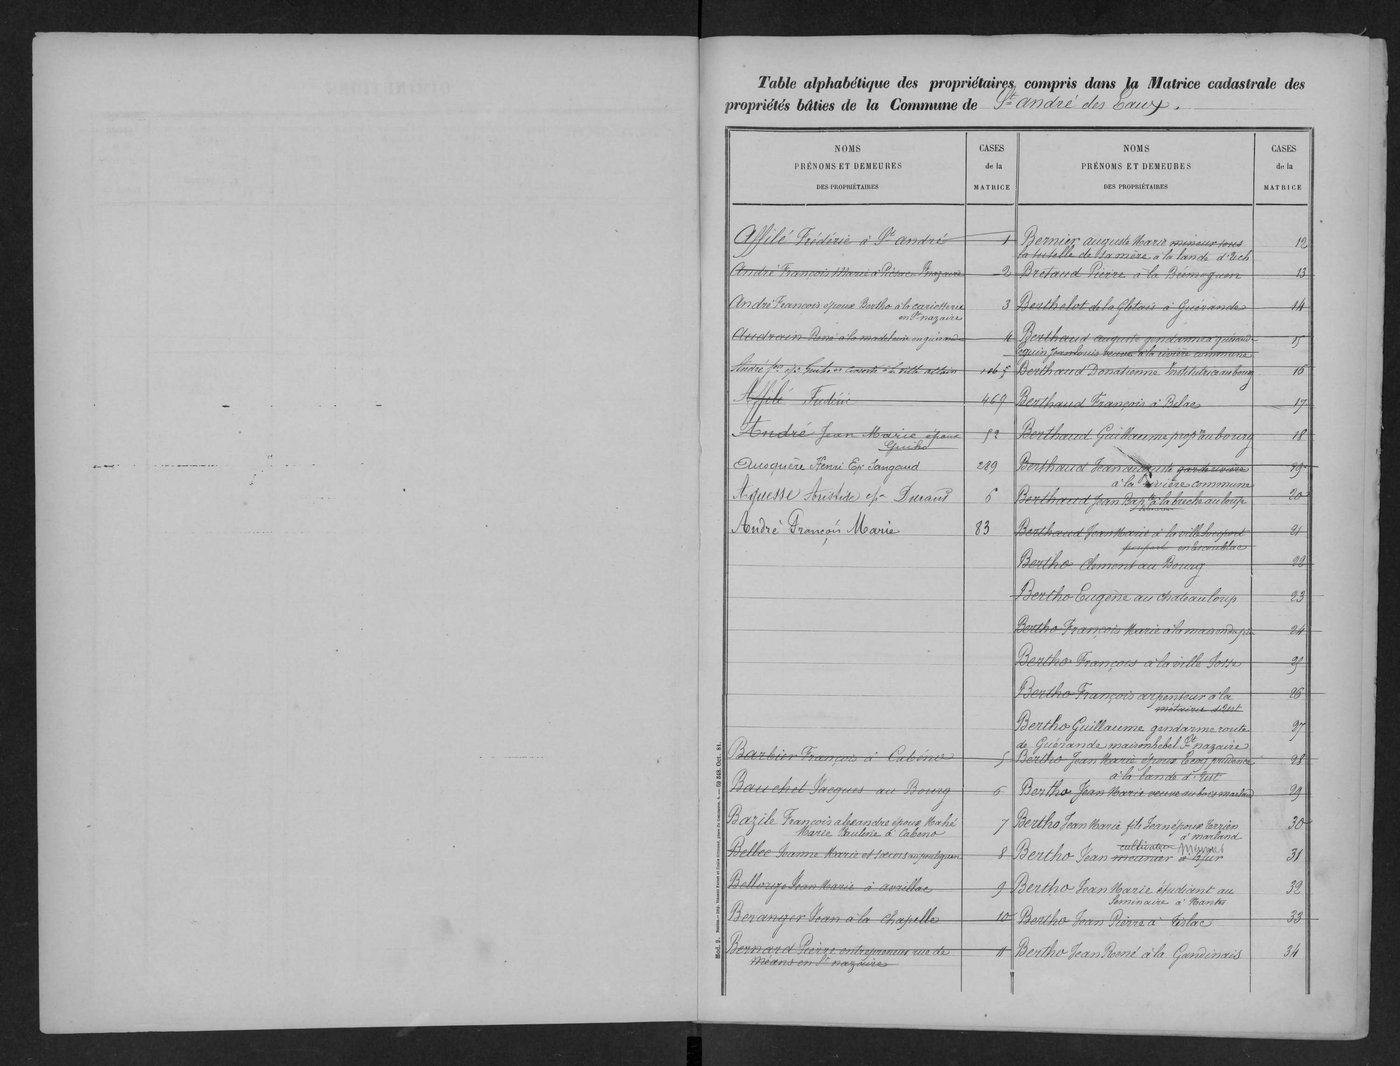 Table alphabétique des propriétaires compris dans la Matrice cadastrale des
propriétés bâties de la Commune de St André des Eaux.
NOMS
PRÉNOMS ET DEMEURES
DES PROPRIÉTAIRES
CASES
de la
MATRICE
NOMS
PRÉNOMS ET DEMEURES
DES PROPRIÉTAIRES
CASES
de la
MATRICE
Affilé Frédéric à St André 1
André François Marie à St Nazaire 2
André François époux Bertho à la
en St nazaire 3
Audrain René à la madeleine en guérande 4
André
Affilé Frédéric 469
André Jean Marie époux
Guiho 52
Ausquère Henri Ep. Sangaud 289
Aguesse Aristide ep. Durand 6
André François Marie 83
Barbier François à Cabéno 5
Bauchet Jacques au Bourg 6
Bazile François alexandre époux Mahé
Marie à Cabeno 7
Bellec Jeanne Marie et soeurs au pouliguen 8
Bellouze Jean Marie à avrillac 9
Beranger Jean à la Chapelle 10
Bernard Pierre entrepreneur rue de
Méans en St nazaire 11
Bernier auguste Marie mineur sous
la tutelle de sa mère à la lande d'Ech 12
Bretaud Pierre à la 13
Berthelot de la Glétais à Guérande 14
Berthaud auguste gendarme à guérande
Jean Louis veuve à la rivière commune 15
Berthaud Donatienne Institutrice au bourg 16
Berthaud François à Belac 17
Berthaud Guillaume propre au bourg 18
Berthaud Jean auguste garde rivière
à la rivière commune 19
Berthaud Jean Bapte à la au loup 20
Berthaud Jean Marie à la ville
en Escoublac 21
Bertho Clement au Bourg 22
Bertho Eugène au chateauloup 23
Bertho François Marie à la 24
Bertho François à la ville Josse 25
Bertho François arpenteur à la
métairie d'Ust 26
Bertho Guillaume gendarme route
de Guérande maison hebel St nazaire 27
Bertho Jean Marie époux prudence
à la lande d'Ust 28
Bertho Jean Marie veuve au bois marland 29
Bertho Jean Marie fils Jean époux Terrien
à marland 30
cultivateur
Bertho Jean meunier à 31
Bertho Jean Marie étudiant au
Seminaire à Nantes 32
Bertho Jean Pierre à 33
Bertho Jean René à la Gandinais 34